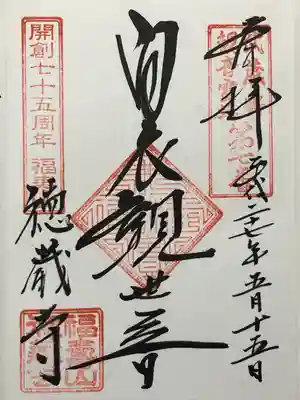 奉拝
平成二十七年五月十五日
白衣觀世音
開創七十五周年
徳蔵寺
福壽山